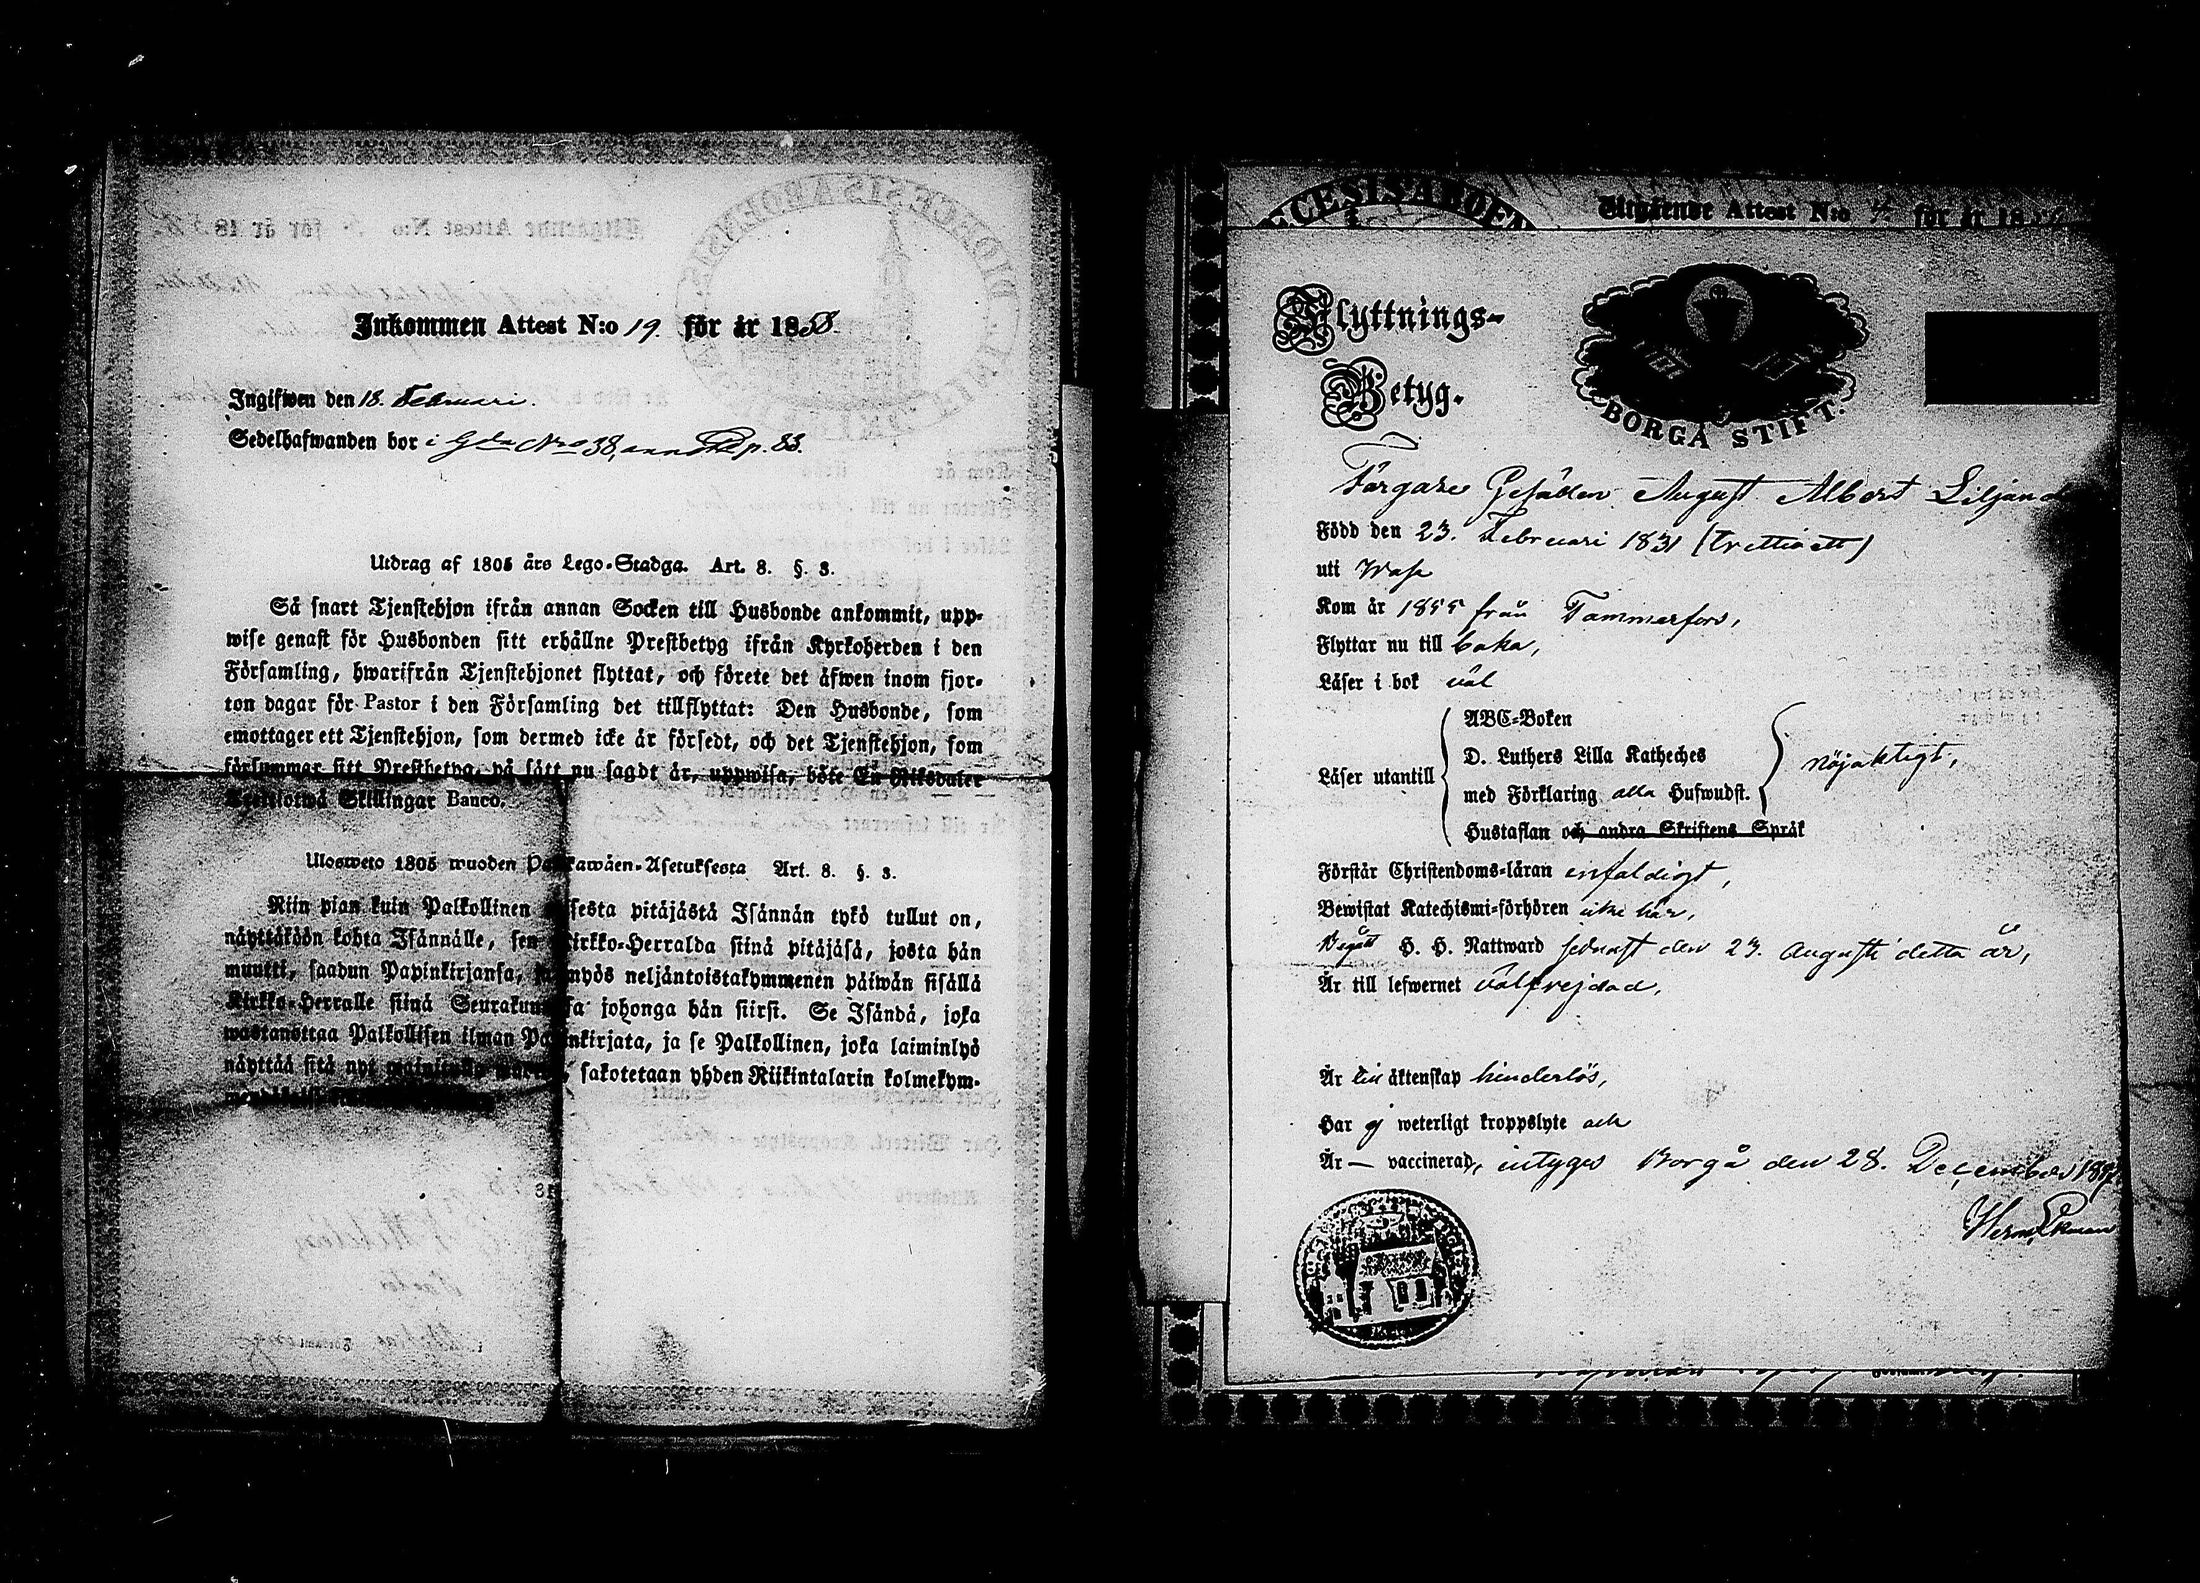 Inkommen Attest N:o 19. för år 1858.
Ingifwen den 18. Februari.
Sedelhafwanden bor i Gda No 38, p. 83.
Utdrag af 1805 års Lego-Stadga. Art. 8. §. 3.
Så snart Tjenstehjon ifrån annan Socken till Husbonde ankommit, upp-
wise genast för Husbonden sitt erhållne Prestbetyg ifrån Kyrkoherden i den
Församling, hwarifrån Tjenstehjonet flyttat, och förete det äfwen inom fjor-
ton dagar för Pastor i den Församling det tillflyttat: Den Husbonde, som
emottager ett Tjenstehjon, som dermed icke är försedt, och det Tjenstehjon, som
försummar sitt Prestbetyg, på sätt nu sagdt är, uppwisa, böte En Riksdaler
Trettiotwå Skillingar Banco.
Ulosweto 1805 wuoden Palkawäen-Asetuksesta Art. 8. §. 3.
Niin pian kuin Palkollinen toisesta pitäjästä Isännän tykö tullut on,
näyttäköön kohta Isännälle, sen Kirkko-Herralda siinä pitäjäsä, josta hän
muutti, saadun Papinkirjansa, ja myös neljäntoistakymmenen päiwän sisällä
Kirkko-Herralle siinä Seurakunnasa johonga hän siirsi. Se Isändä, joka
wastanottaa Palkollisen ilman Papinkirjata, ja se Palkollinen, joka laiminlyö
näyttää sitä nyt mainitulla sakotetaan yhden Riikintalarin kolmekym-
ECESIS ABOEN
Utgående Attest N:o för år 18
Flyttnings-
Betyg.
BORGÅ STIFT.
Färgare Gesällen August Albert Liljand
Född den 23. Februari 1831 (trettioett)
uti Wasa
Kom år 1855 från Tammerfors,
Flyttar nu till baka,
Läser i bok väl
Läser utantill
ABC-Boken
D. Luthers Lilla Katheches
med Förklaring alla Hufwudst.
Hustaflan och andra Skriftens Språk
nöjaktigt,
Förstår Christendoms-läran enfaldigt,
Bewistat Katechismi-förhören icke här,
Begått H. H. Nattward sednast den 23. Augusti detta år,
Är till lefwernet välfrejdad,
Är till äktenskap hinderlös,
Har ej weterligt kroppslyte och
Är — vaccinerad, intyges Borgå den 28. December 1857.
Herm. Ekman